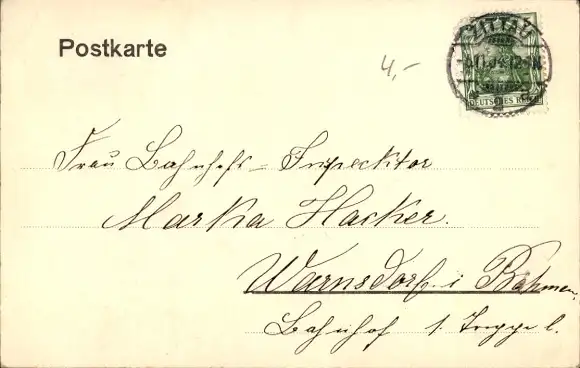 Postkarte
4,-
ZITTAU
DEUTSCHES REICH
Frau Bahnhofs-Inspecktor
Marka Hacker.
Warnsdorf i Böhmen
Bahnhof 1. Treppe l.